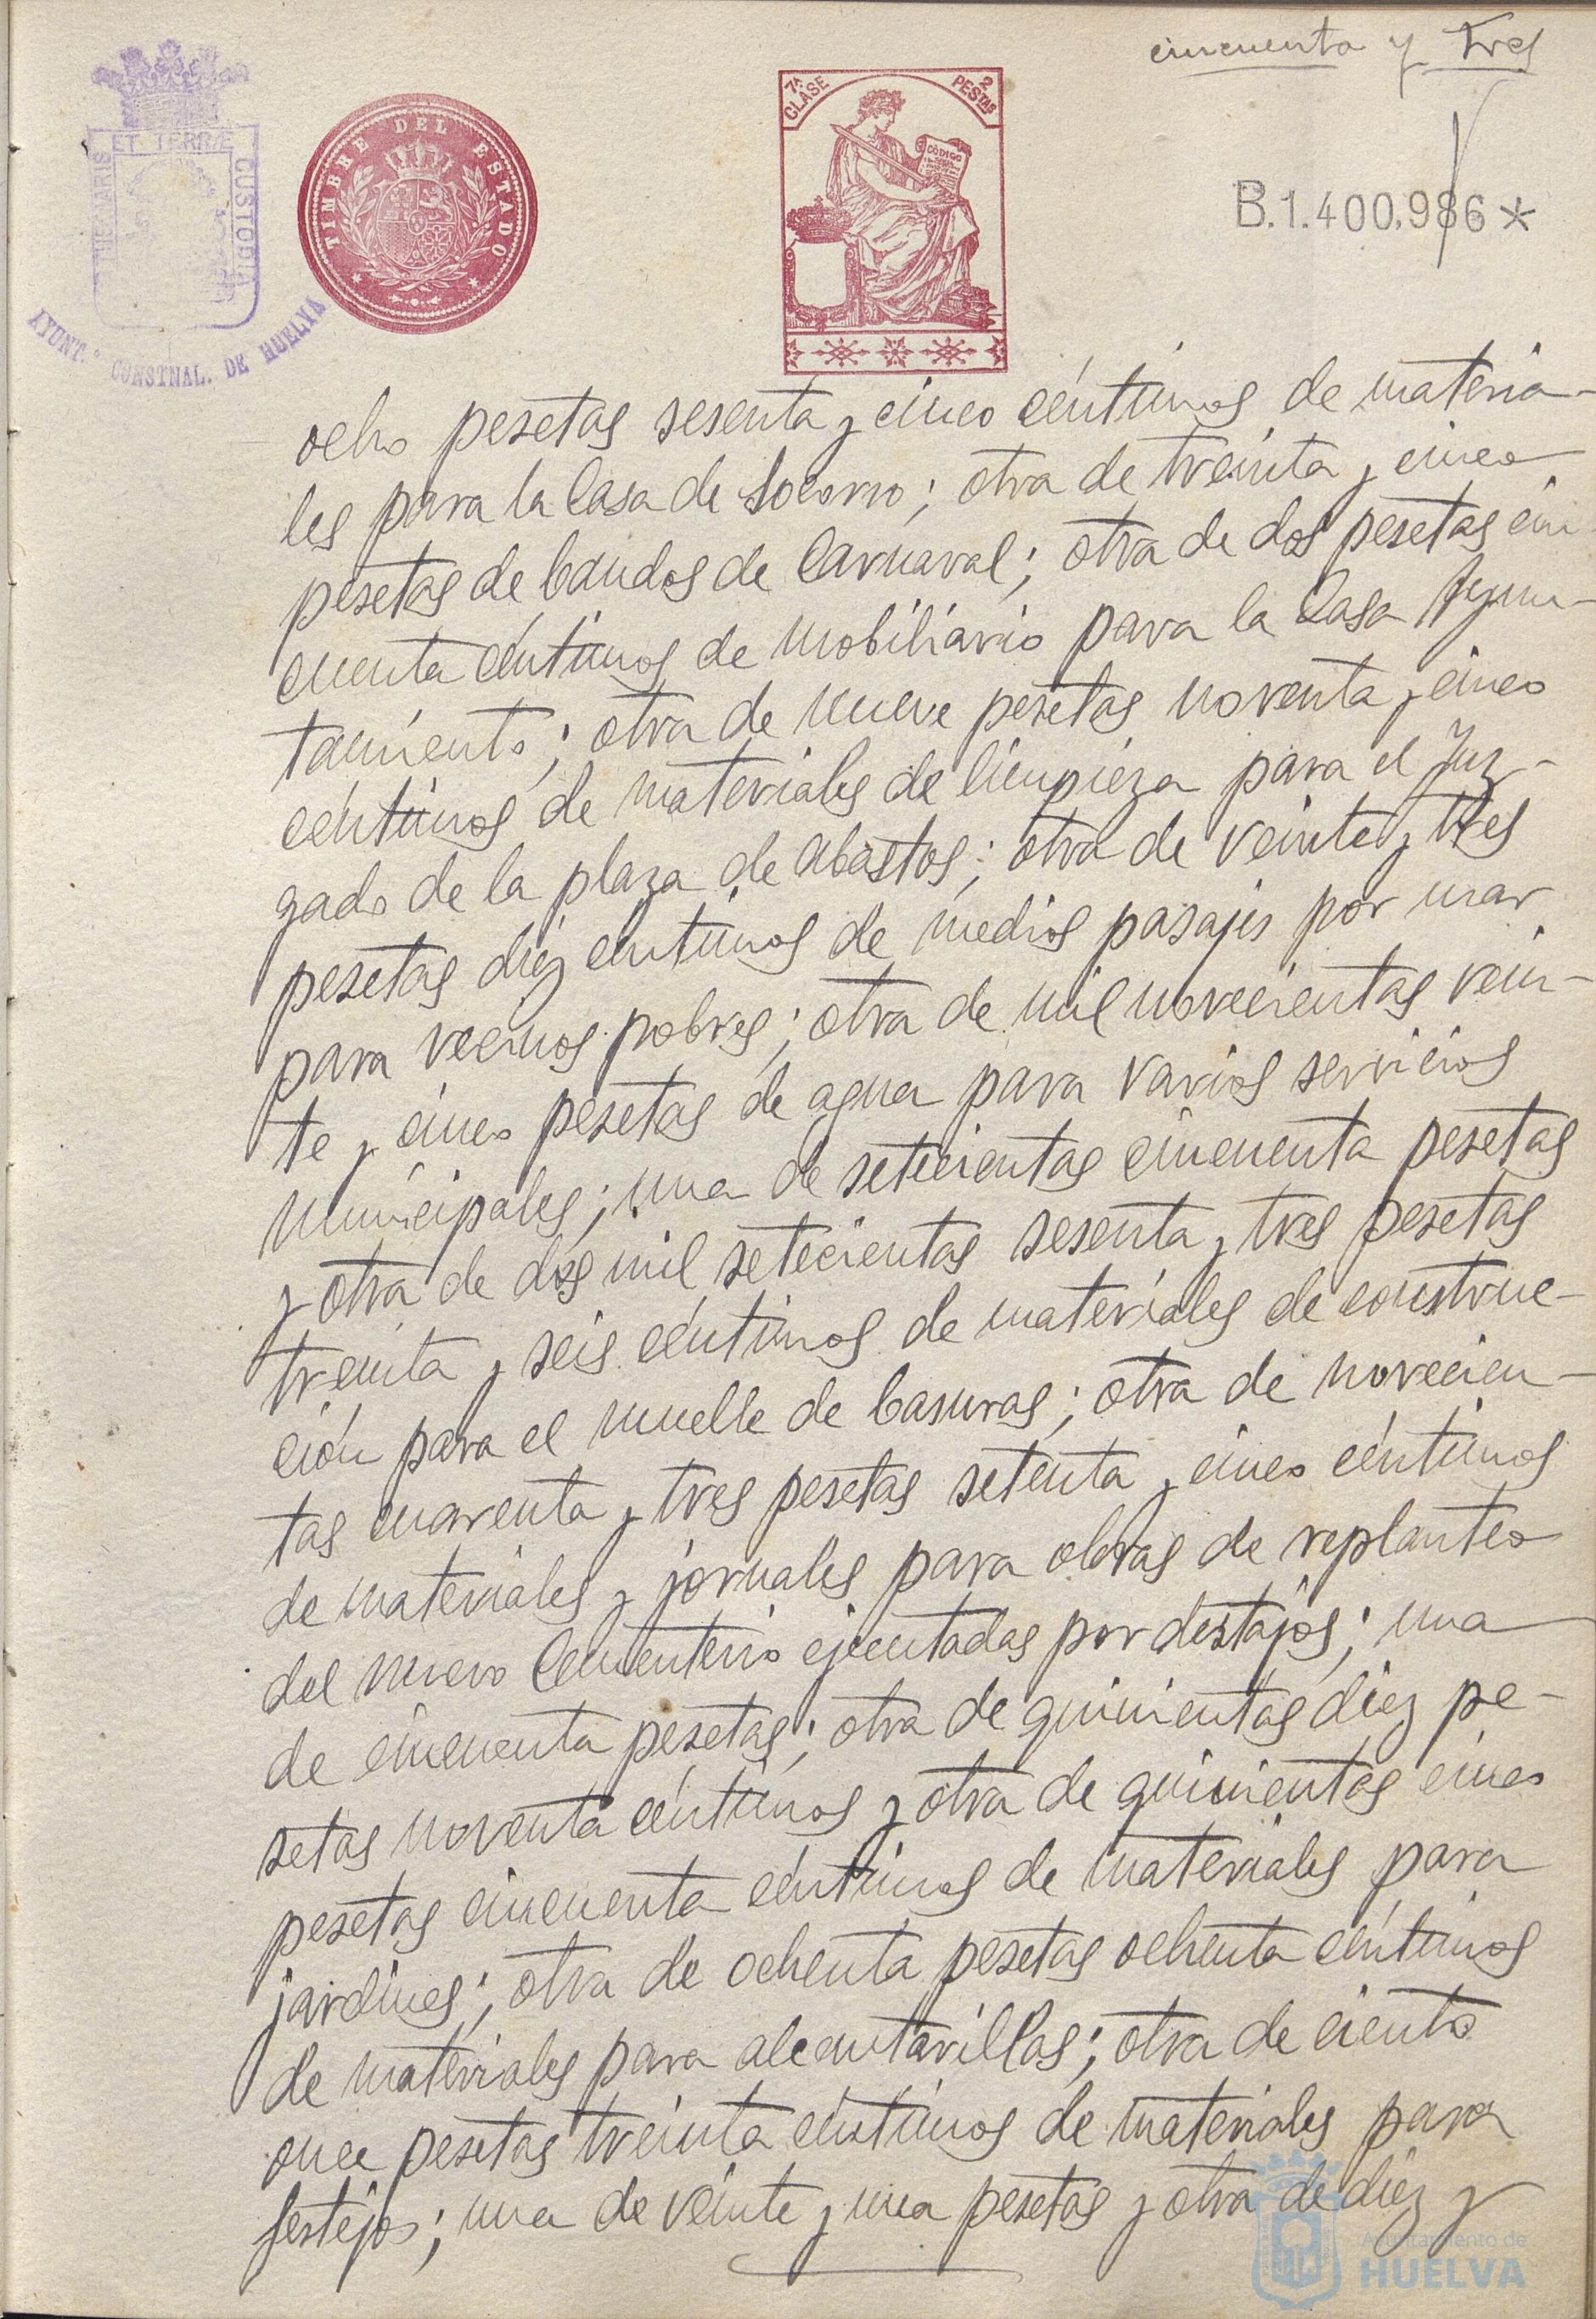 cincuenta y tres
PORTUS MARIS ET TERRÆ CUSTODIA
AYUNT.º CONSTNAL. DE HUELVA
TIMBRE DEL ESTADO
7ª CLASE
2 PESTAS
CÓDIGO
B.1.400.986*
ocho pesetas sesenta y cinco céntimos de materia-
les para la Casa de Socorro; otra de treinta y cinco
pesetas de bandos de Carnaval; otra de dos pesetas cin
cuenta céntimos de mobiliario para la Casa Ayun-
tamiento; otra de nueve pesetas noventa y cinco
céntimos de materiales de limpieza para el Juz-
gado de la plaza de abastos; otra de veinte y tres
pesetas diez céntimos de medios pasajes por mar
para vecinos pobres; otra de mil novecientas vein-
te y cinco pesetas de agua para varios servicios
municipales; una de setecientas cincuenta pesetas
y otra de dos mil setecientas sesenta y tres pesetas
treinta y seis céntimos de materiales de construc-
ción para el muelle de basuras; otra de novecien-
tas cuarenta y tres pesetas setenta y cinco céntimos
de materiales y jornales para obras de replanteo
del nuevo Cementerio ejecutadas por destajos; una
de cincuenta pesetas; otra de quinientas diez pe-
setas noventa céntimos y otra de quinientas cinco
pesetas cincuenta céntimos de materiales para
jardines; otra de ochenta pesetas ochenta céntimos
de materiales para alcantarillas; otra de ciento
once pesetas treinta céntimos de materiales para
festejos; una de veinte y una pesetas y otra de diez y
Ayuntamiento de
HUELVA